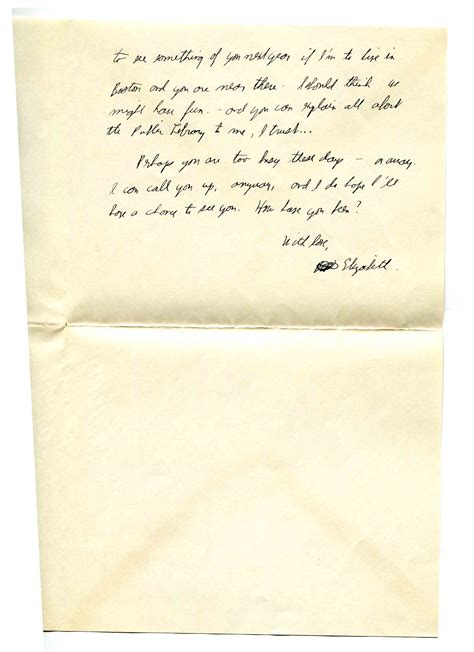 to see something of you next year if I'm to live in
Boston and you are near there. I should think we
might have fun. - and you can explain all about
the Public Library to me, I trust...
Perhaps you are too busy these days - or away.
I can call you up, anyway, and I do hope I'll
have a chance to see you. How have you been?
With love,
Elizabeth.